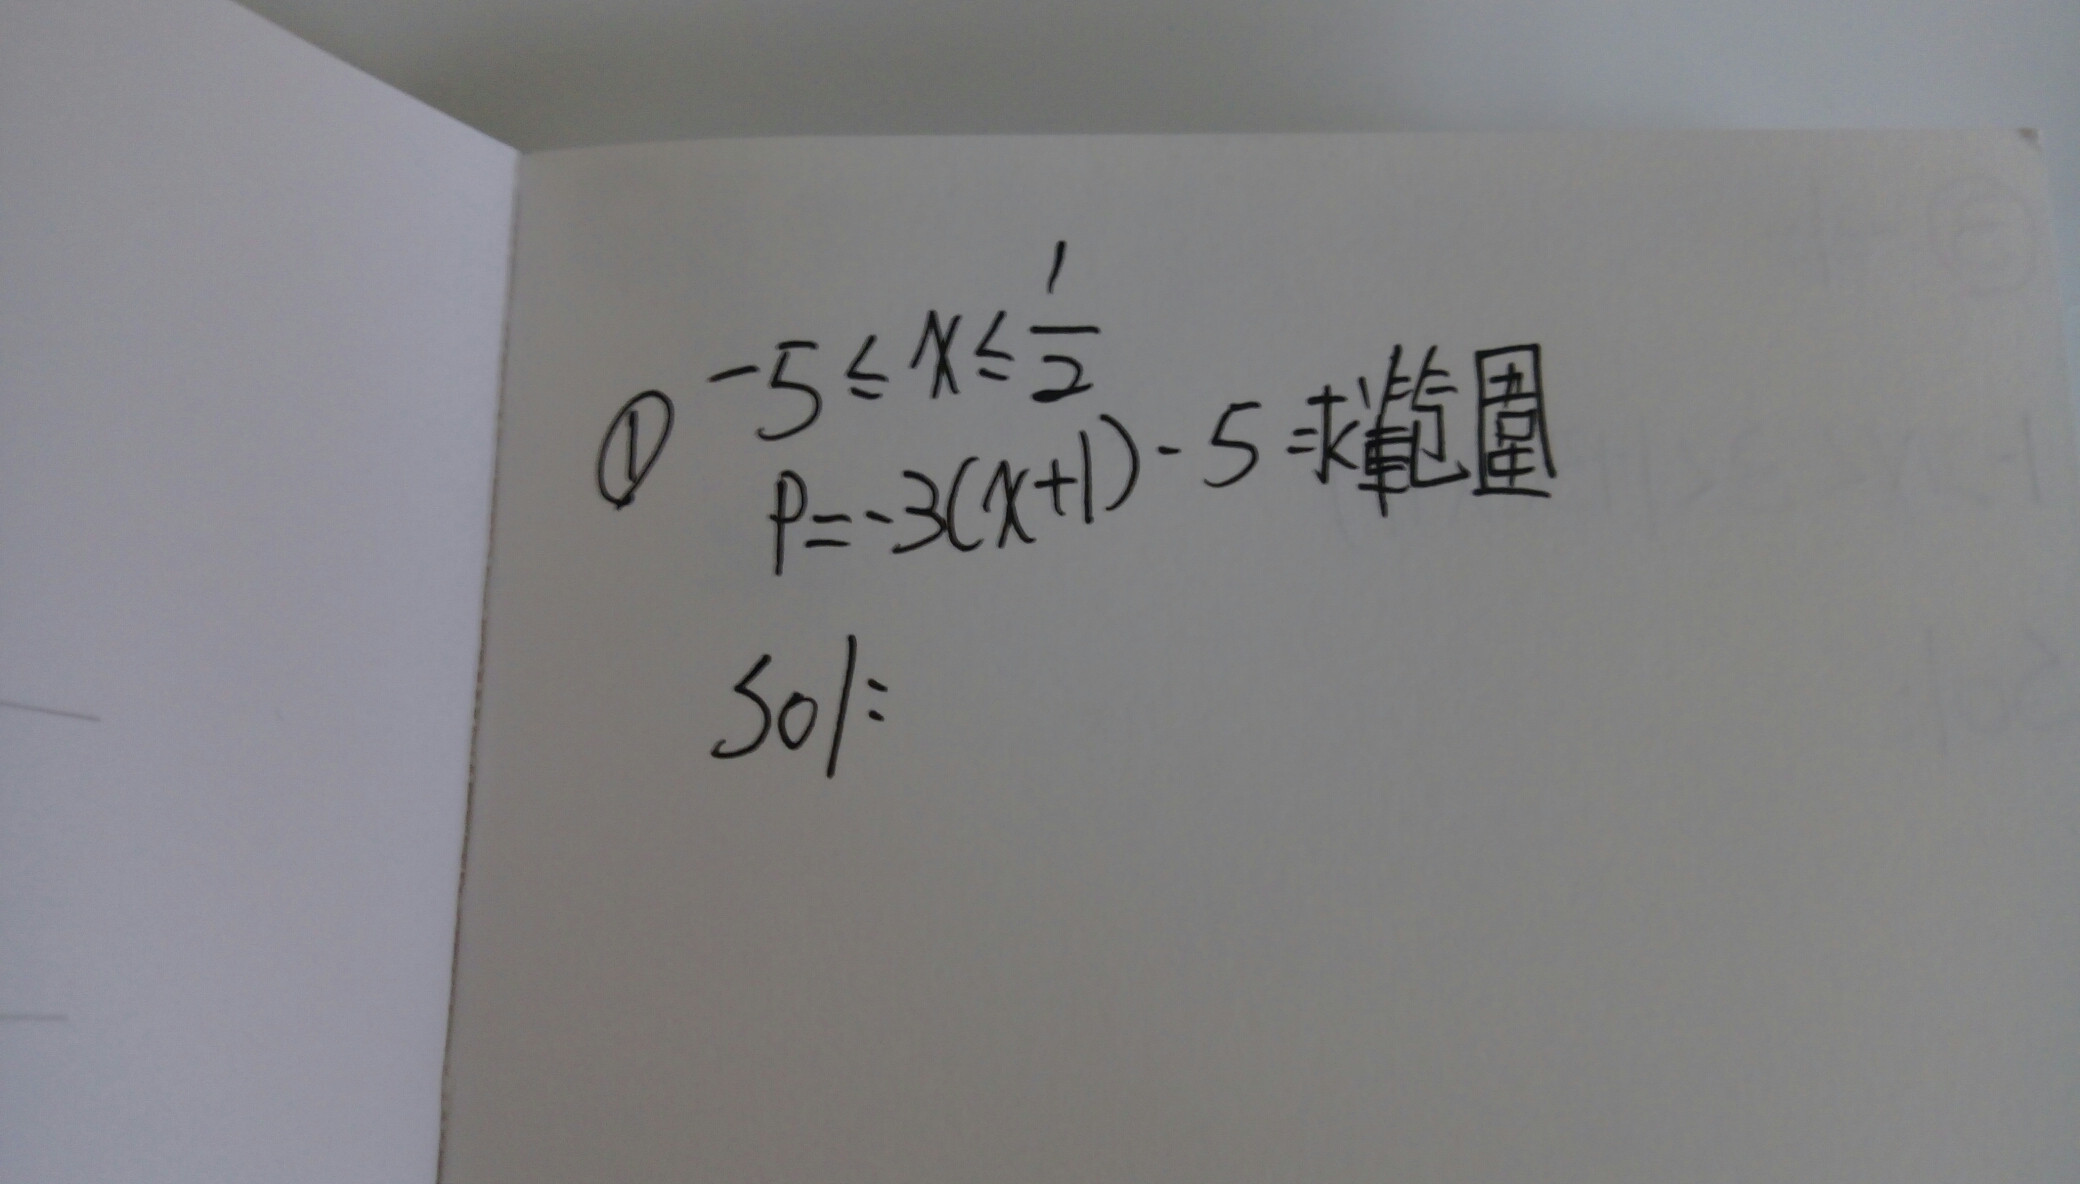 ① -5 ≤ x ≤ 1/2
P=-3(x+1)-5 求範圍
Sol: